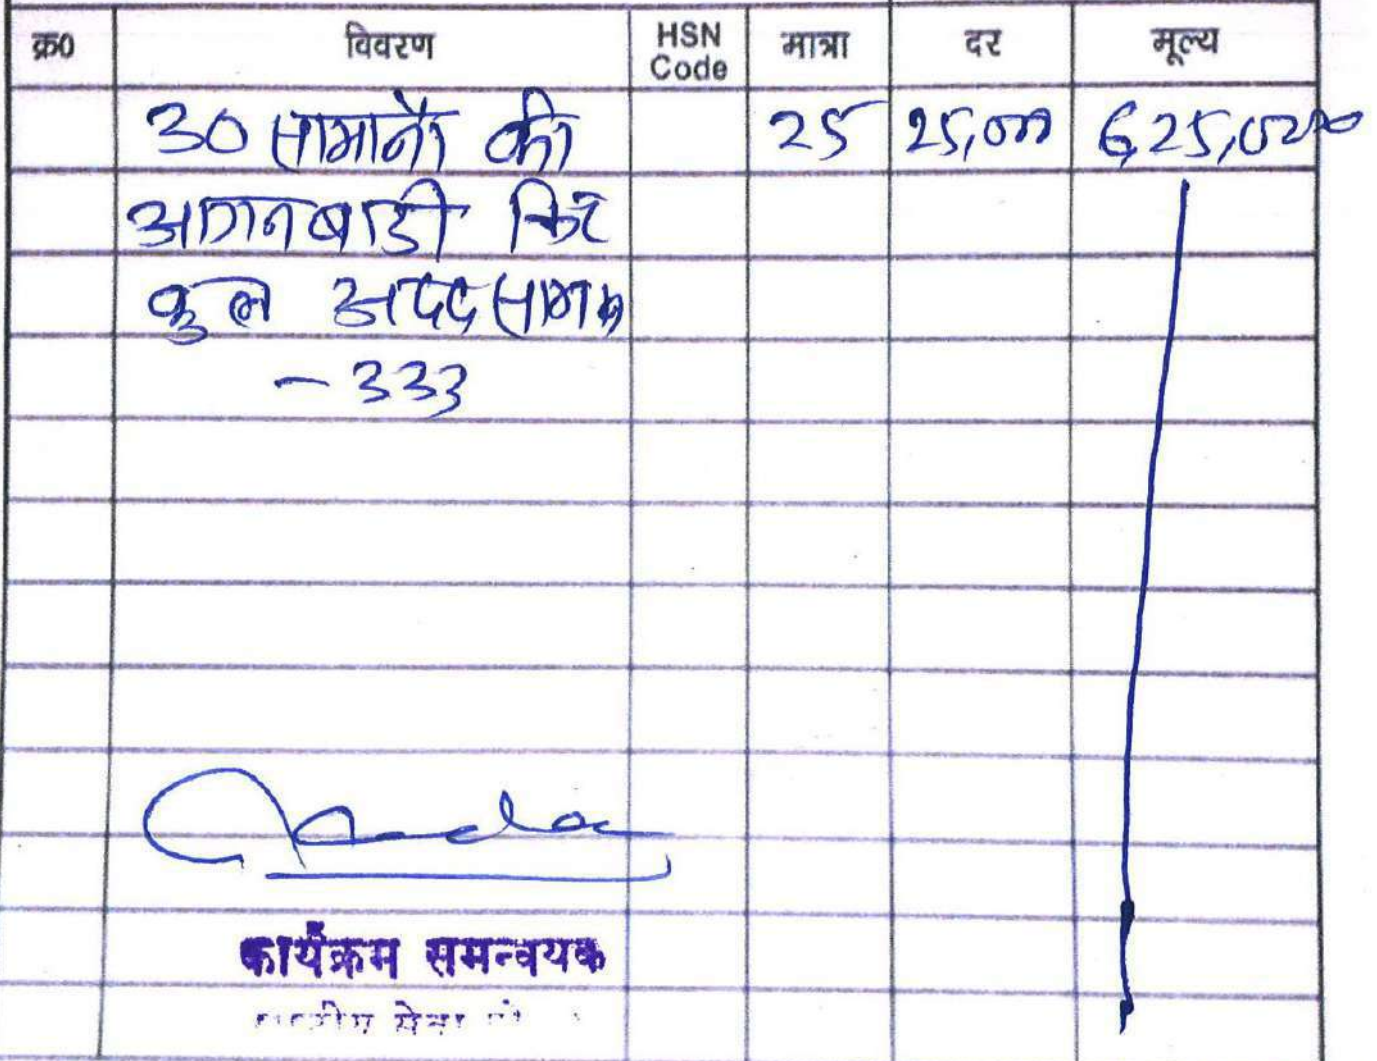 क्र0 विवरण HSN Code मात्रा दर मूल्य
30 सामानों की 25 25,000 6,25,000
आगनबाडी किट
कुल अदद सामान
- 333
कार्यक्रम समन्वयक